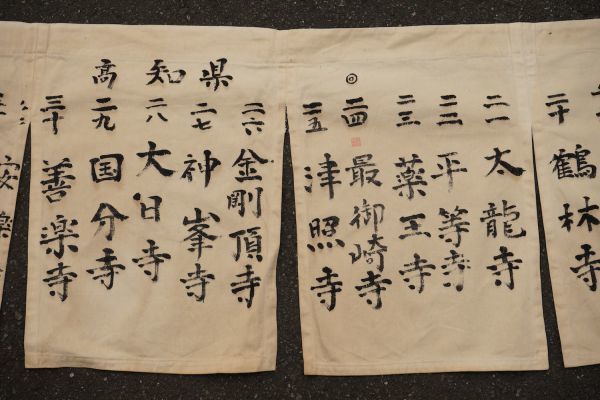 二十 鶴林寺
二一 太龍寺
二二 平等寺
二三 薬王寺
◎
二四 最御崎寺
二五 津照寺
高知県
二六 金剛頂寺
二七 神峯寺
二八 大日寺
二九 国分寺
三十 善楽寺
安楽